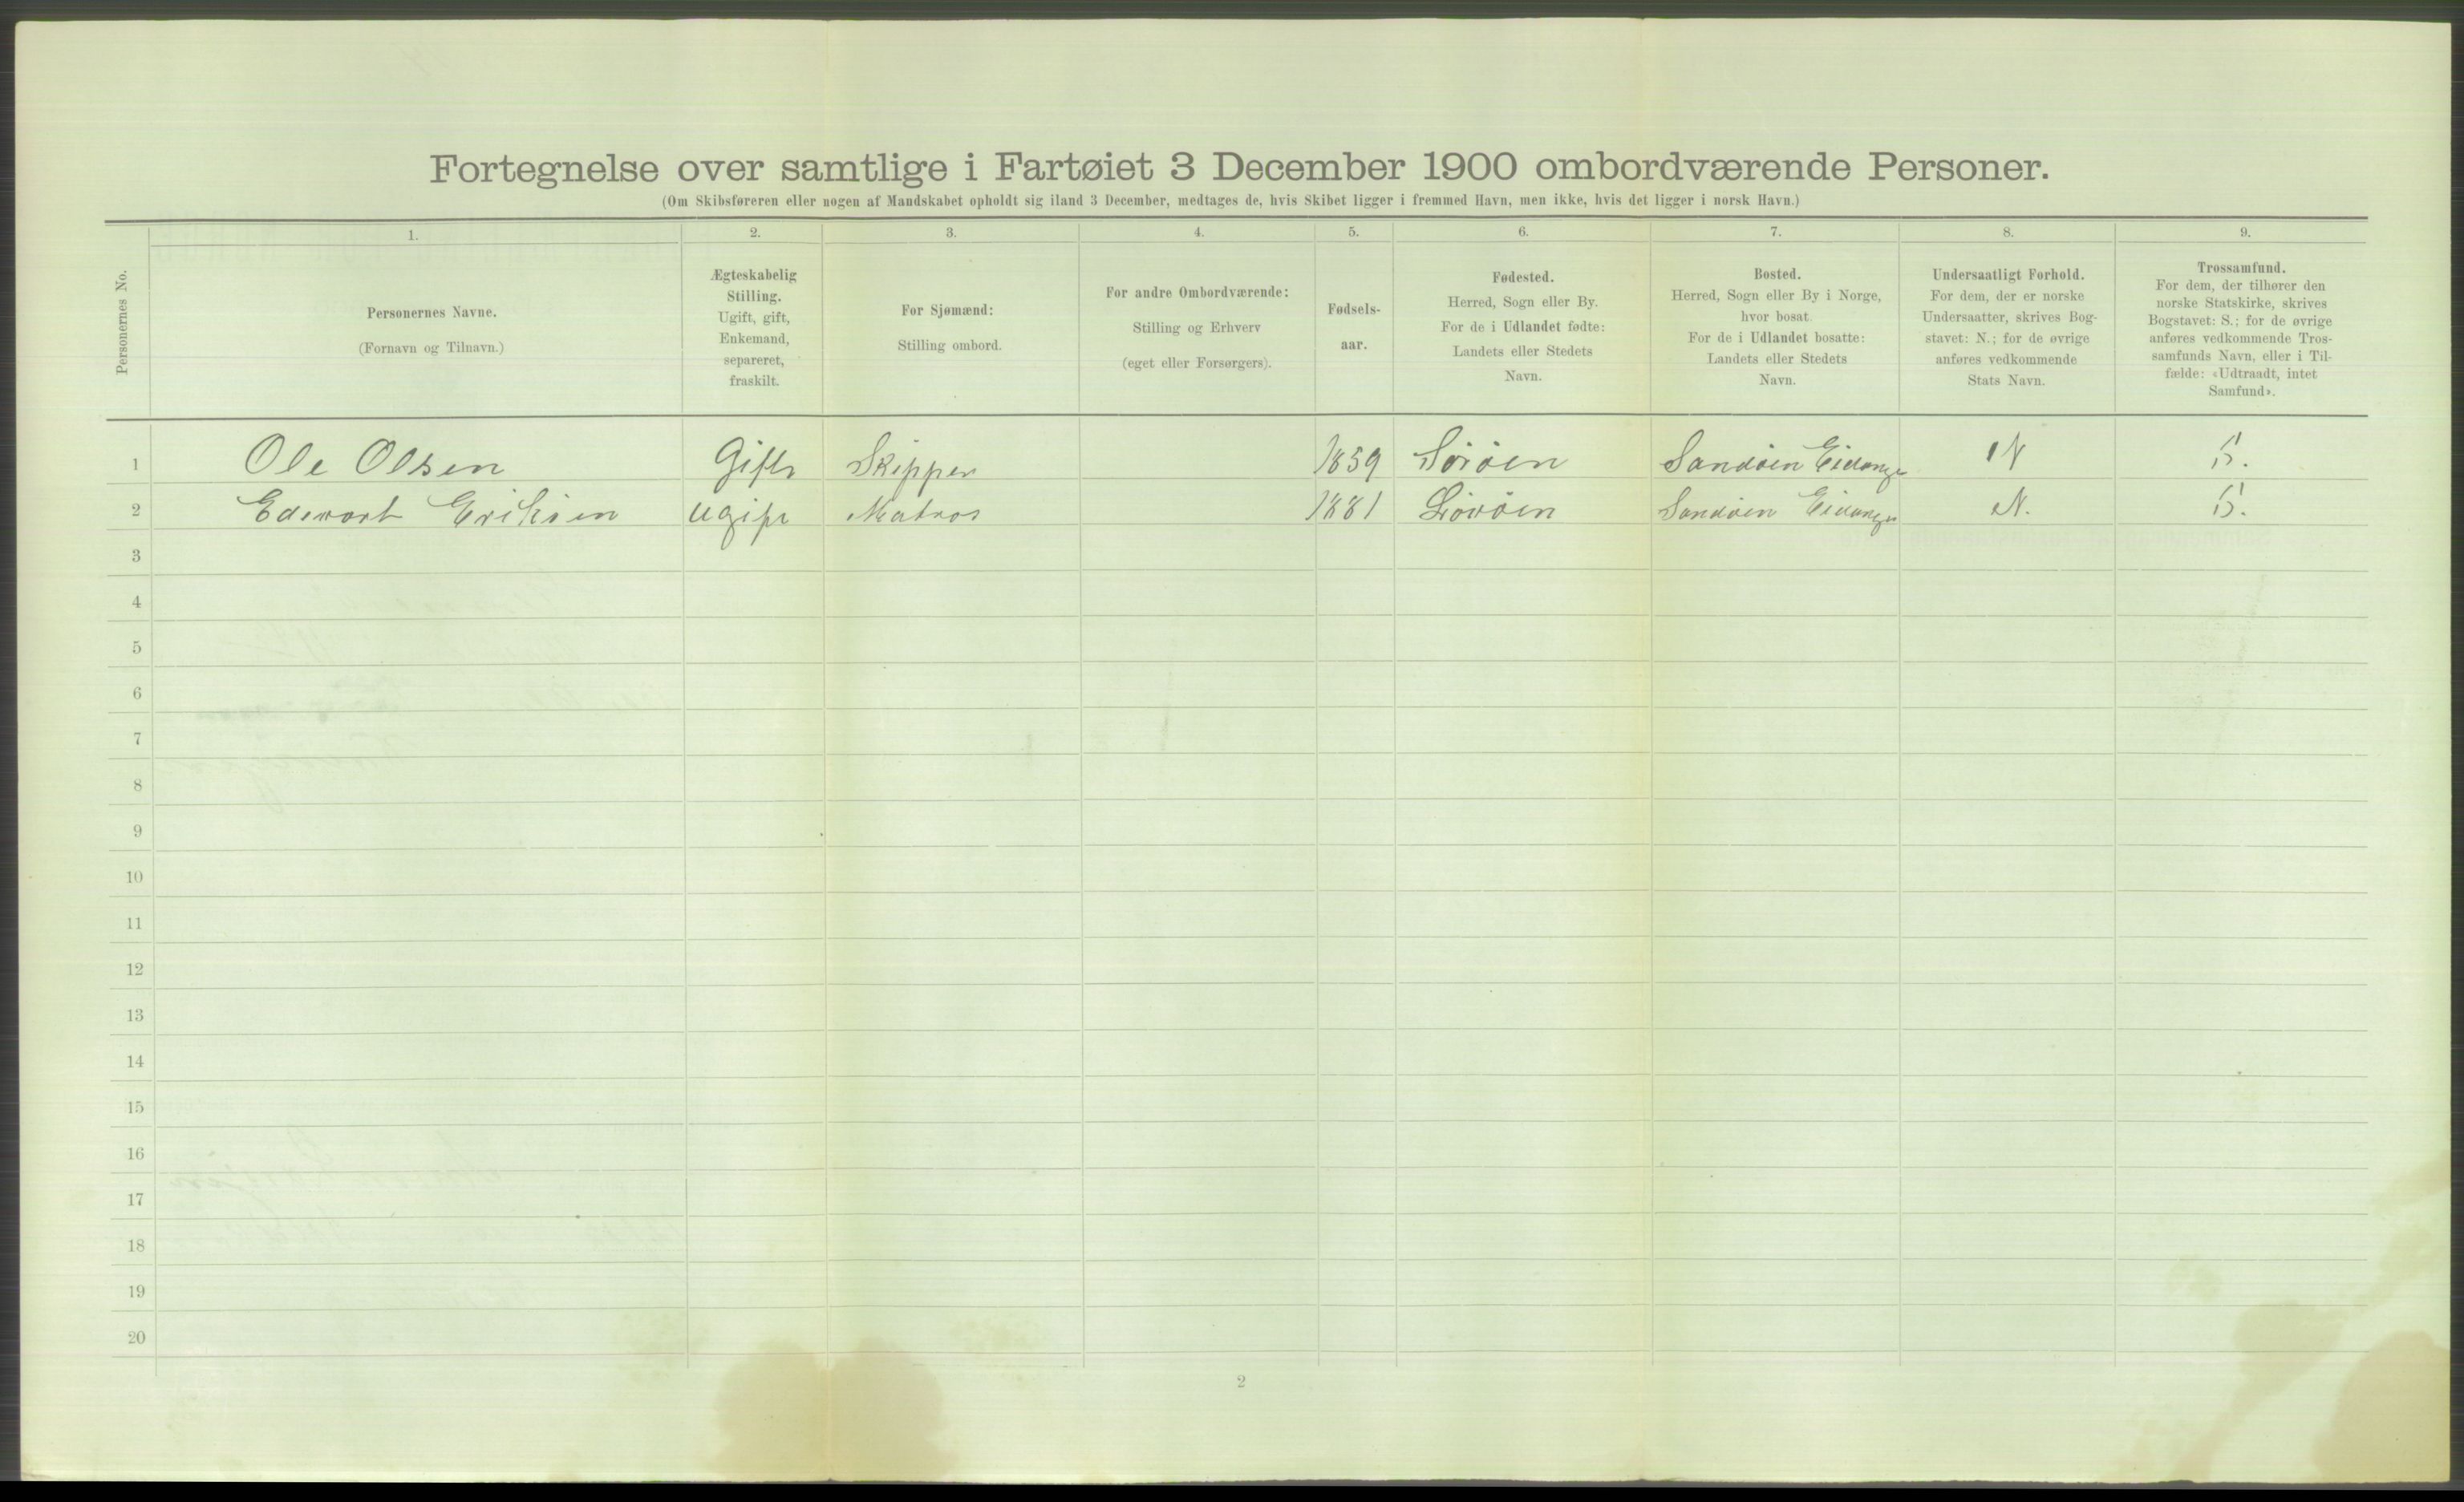 Fortegnelse over samtlige i Fartøiet 3 December 1900 ombordværende Personer.
(Om Skibsføreren eller nogen af Mandskabet opholdt sig iland 3 December, medtages de, hvis Skibet ligger i fremmed Havn, men ikke, hvis det ligger i norsk Havn.)
Personernes No.
1.
Personernes Navne.
(Fornavn og Tilnavn.)
2.
Ægteskabelig
Stilling.
Ugift, gift,
Enkemand,
separeret,
fraskilt.
3.
For Sjømænd:
Stilling ombord.
4.
For andre Ombordværende:
Stilling og Erhverv
(eget eller Forsørgers).
5.
Fødsels-
aar.
6.
Fødested.
Herred, Sogn eller By.
For de i Udlandet fødte:
Landets eller Stedets
Navn.
7.
Bosted.
Herred, Sogn eller By i Norge,
hvor bosat.
For de i Udlandet bosatte:
Landets eller Stedets
Navn.
8.
Undersaatligt Forhold.
For dem, der er norske
Undersaatter, skrives Bog-
stavet: N.; for de øvrige
anføres vedkommende
Stats Navn.
9.
Trossamfund.
For dem, der tilhører den
norske Statskirke, skrives
Bogstavet: S.; for de øvrige
anføres vedkommende Tros-
samfunds Navn, eller i Til-
fælde: «Udtraadt, intet
Samfund».
1 Ole Olsen Gift Skipper 1859 Sandöen Eidanger N S.
2 Edewart Eriksen ugift Matros 1881 Sandöen Eidanger N. S.
3
4
5
6
7
8
9
10
11
12
13
14
15
16
17
18
19
20
2